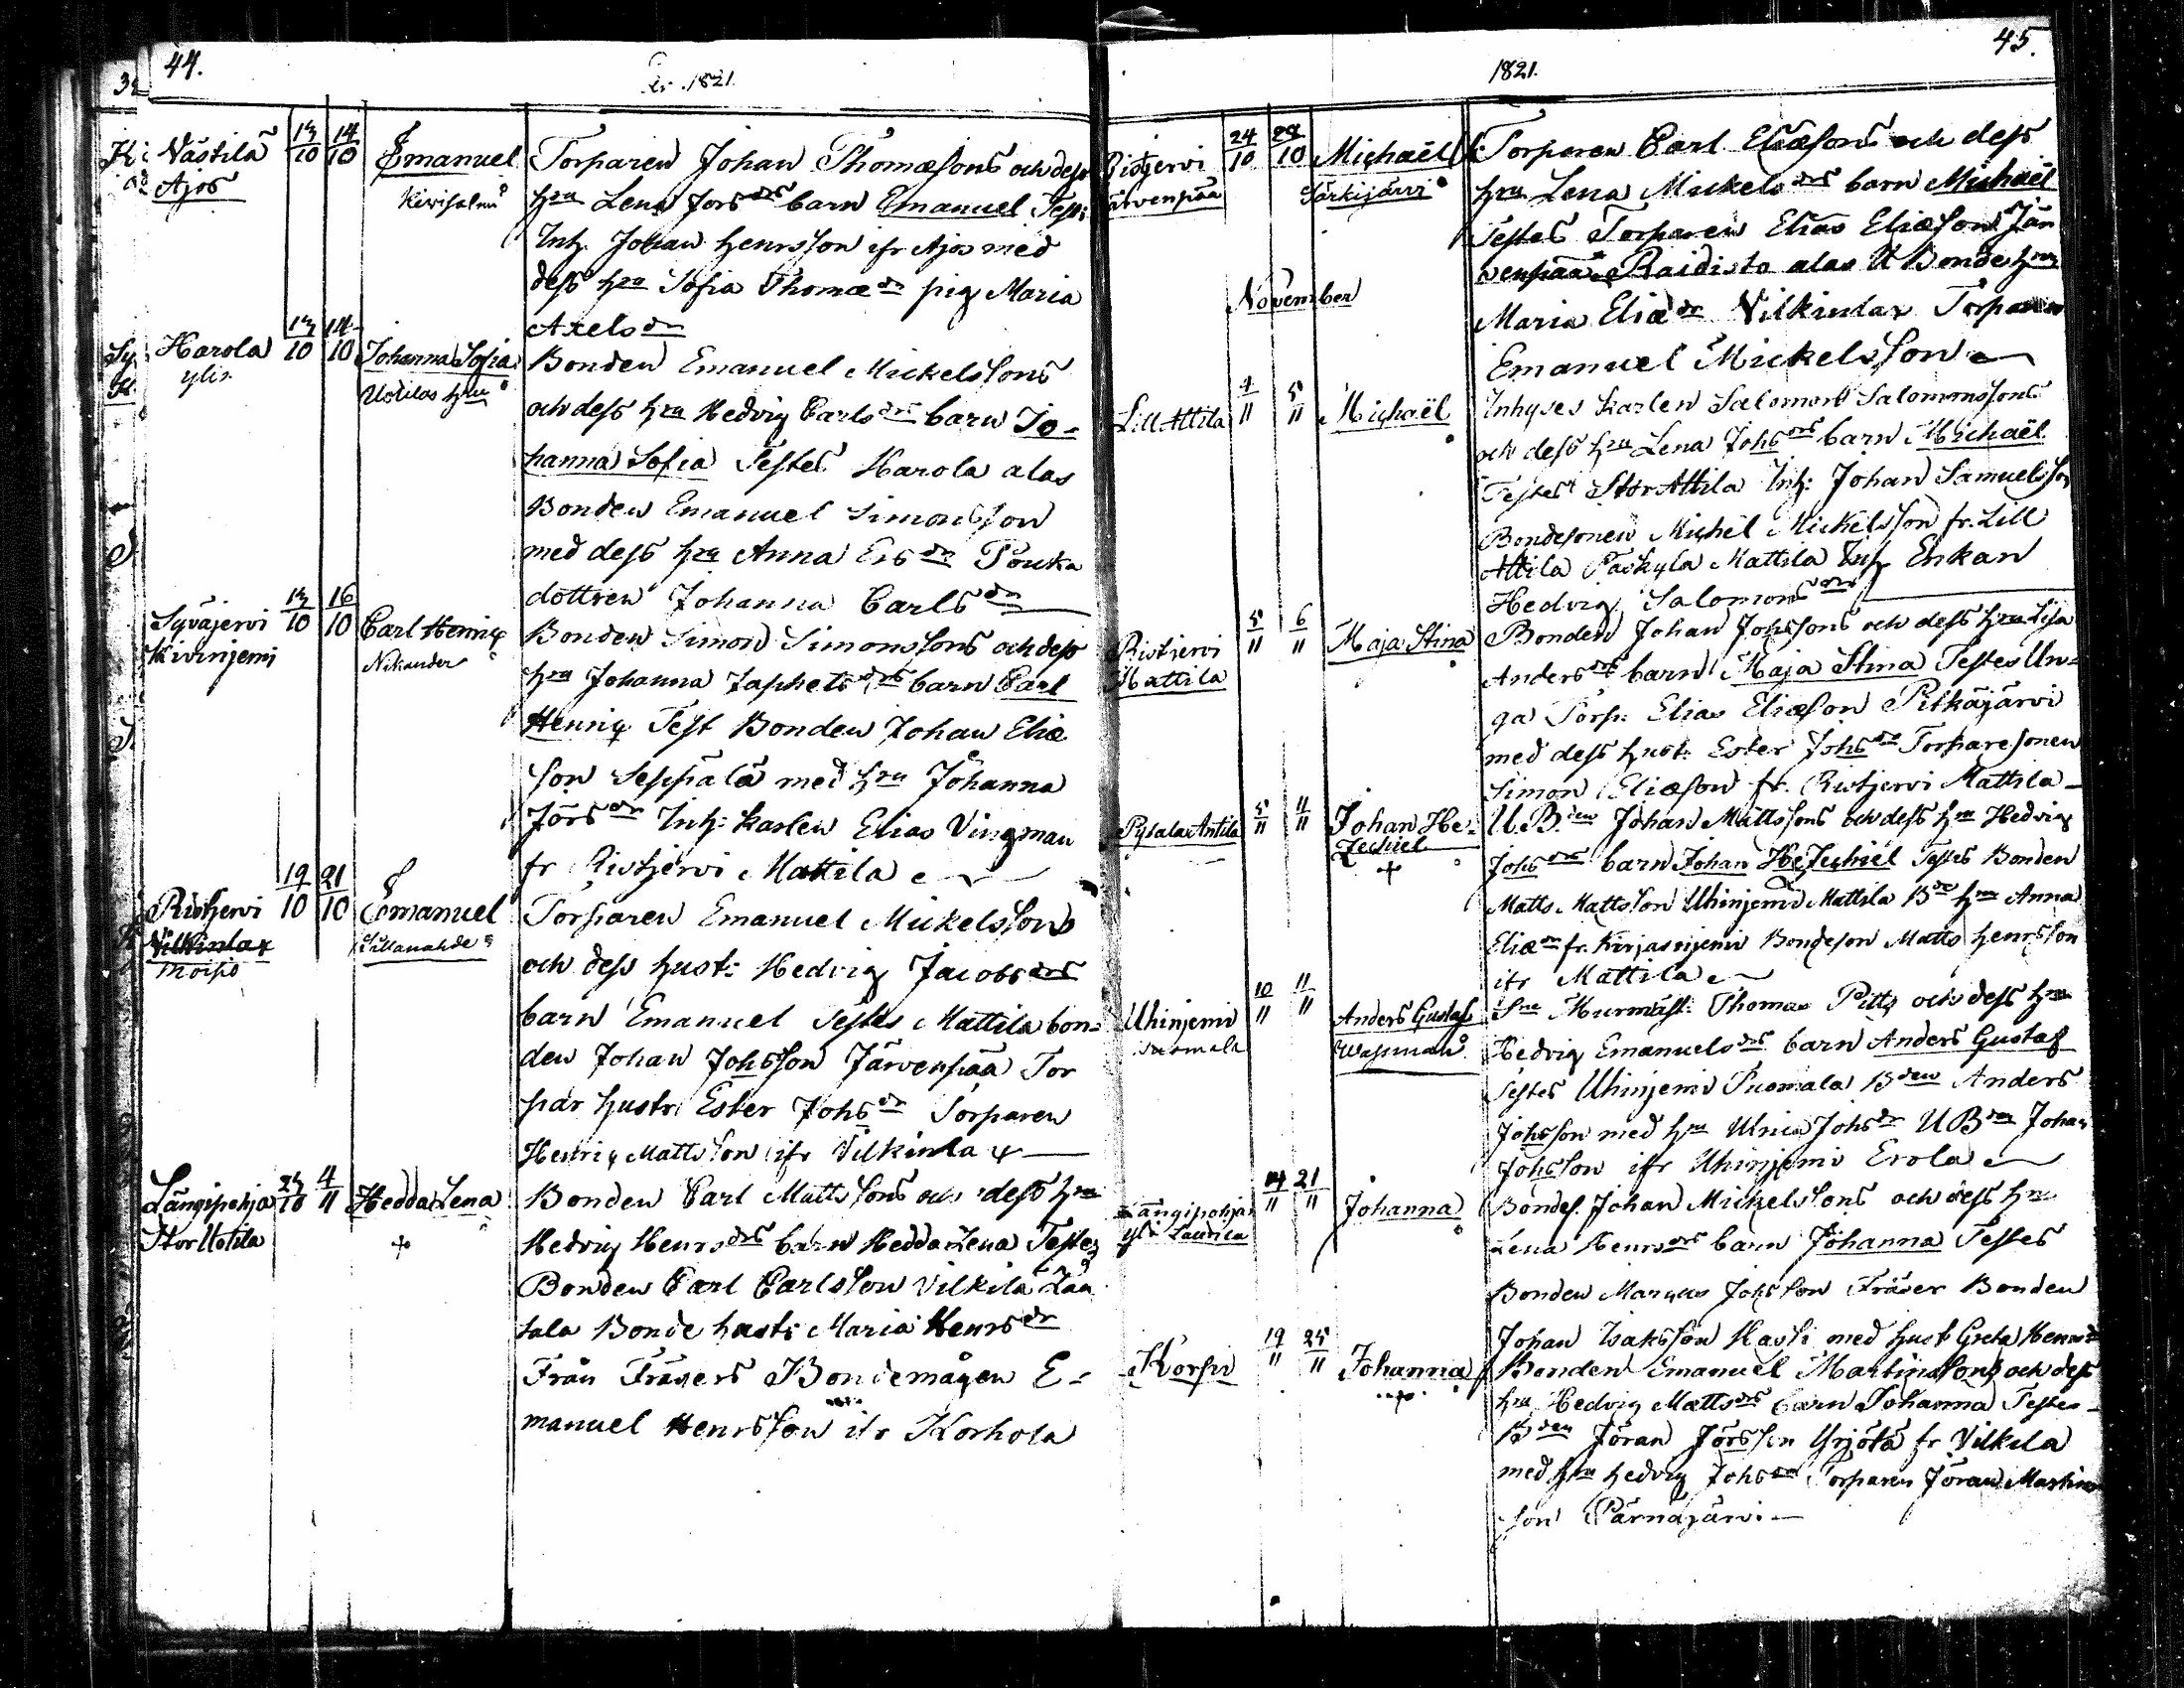 44.
År 1821.
Nästilä 13/10 14/10 Emanuel Torparen Johan Thomæsons och dess
Ajos Kivisalmi hru Lena Jörsdrs barn Emanuel Test:
Inh. Johan Henrsson ifr Ajos med
dess hru Sofia Thomædr pig Maria
Axelsdr
Harola 13/10 14/10 Johanna Sofia Bonden Emanuel Mickelssons
ylis. Uotilas hru och dess hru Hedvig Carlsdrs barn Jo-
hanna Sofia Testes Harola alas
Bonden Emanuel Simonsson
med dess hru Anna Ersdr Pouka
dottren Johanna Carlsdr
Syväjervi 13/10 16/10 Carl Henric Bonden Simon Simonssons och dess
Kivinjemi Nikander hru Johanna Japhetsdrs barn Carl
Henric Test Bonden Johan Eliæ
son Seppälä med hru Johanna
Jörsdr Inh: karlen Elias Vingman
fr Ristjervi Mattila
Ristjervi 19/10 21/10 Emanuel Torparen Emanuel Mickelssons
Vilkinlax Sillanahde och dess hust: Hedvig Jacobsdrs
Moisio
barn Emanuel Testes Mattila bon-
den Johan Johsson Järvenpää Tor
par hustr: Ester Johsdr Torparen
Henric Mattsson ifr Vilkinlax
Längipohja 23/10 4/11 Hedda Lena Bonden Carl Mattssons och dess hru
Stor Uotila + Hedvig Henrsdrs barn Hedda Lena Testes
Bonden Carl Carlsson Vilkilä Lau
tala Bonde hust: Maria Henrsdr
Från Fräsers Bondemågen E-
manuel Henrsson ifr Korhola
45.
1821.
Ristjervi 24/10 28/10 Michaël Torparen Carl Eliæsons och dess
Järvenpää Särkijärvi hru Lena Mickelsdrs barn Michaël
Testes Torparen Elias Eliæson Jär
venpää Raidisto alas U Bonde hru
Maria Eliædr Vilkinlax Torparen
Emanuel Mickelsson
November
Lill Attila 4/11 5/11 Michaël Inhyses karlen Salomon Salomonssons
och dess hru Lena Johsdrs barn Michaël
Testes Stor Attila Inh: Johan Samuelsson
Bondesonen Michel Mickelsson fr. Lill
Attila Mattila Inh Enkan
Hedvig Salomonsdr
Ristjervi 5/11 6/11 Maja Stina Bonden Johan Johssons och dess hru Lisa
Mattila Andersdrs barn Maja Stina Testes Un-
ga Torp: Elias Eliæson Pitkäjärvi
med dess hust: Ester Johsdr Torparesonen
Simon Eliæson fr. Ristjervi Mattila
Pyälä Antila 5/11 11/11 Johan He- U.B.den Johan Mattssons och dess hru Hedvig
zechiel Johsdrs barn Johan Hezechiel Testes Bonden
+ Matts Mattsson Uhinjemi Mattila Bde hru Anna
Eliædr fr. Kirjasnjemi Bondeson Matts Henrsson
ifr Mattila
Uhinjemi 10/11 11/11 Anders Gustaf Murmäst: Thomas Pitts och dess hru
Suomala Wassman Hedvig Emanuelsdrs barn Anders Gustaf
Testes Uhinjemi Suomala Bden Anders
Johsson med hru Ulrica Johsdr U Bden Johan
Johsson ifr Uhinjemi Erola
Längipohja 14/11 21/11 Johanna Bondes. Johan Mickelssons och dess hru
yli Laurila Lena Henrsdrs barn Johanna Testes
Bonden Marcus Johsson Fräser Bonden
Johan Isaksson Hassi med hust Greta Henrsdr
Korpi 19/11 25/11 Johanna Bonden Emanuel Martinssons och dess
+ hru Hedvig Mattsdrs barn Johanna Testes
Bden Jöran Jörsson Yrjölä fr Vilkila
med hru Hedvig Johsdr Torparen Jöran Martins
son Pärnäjärvi